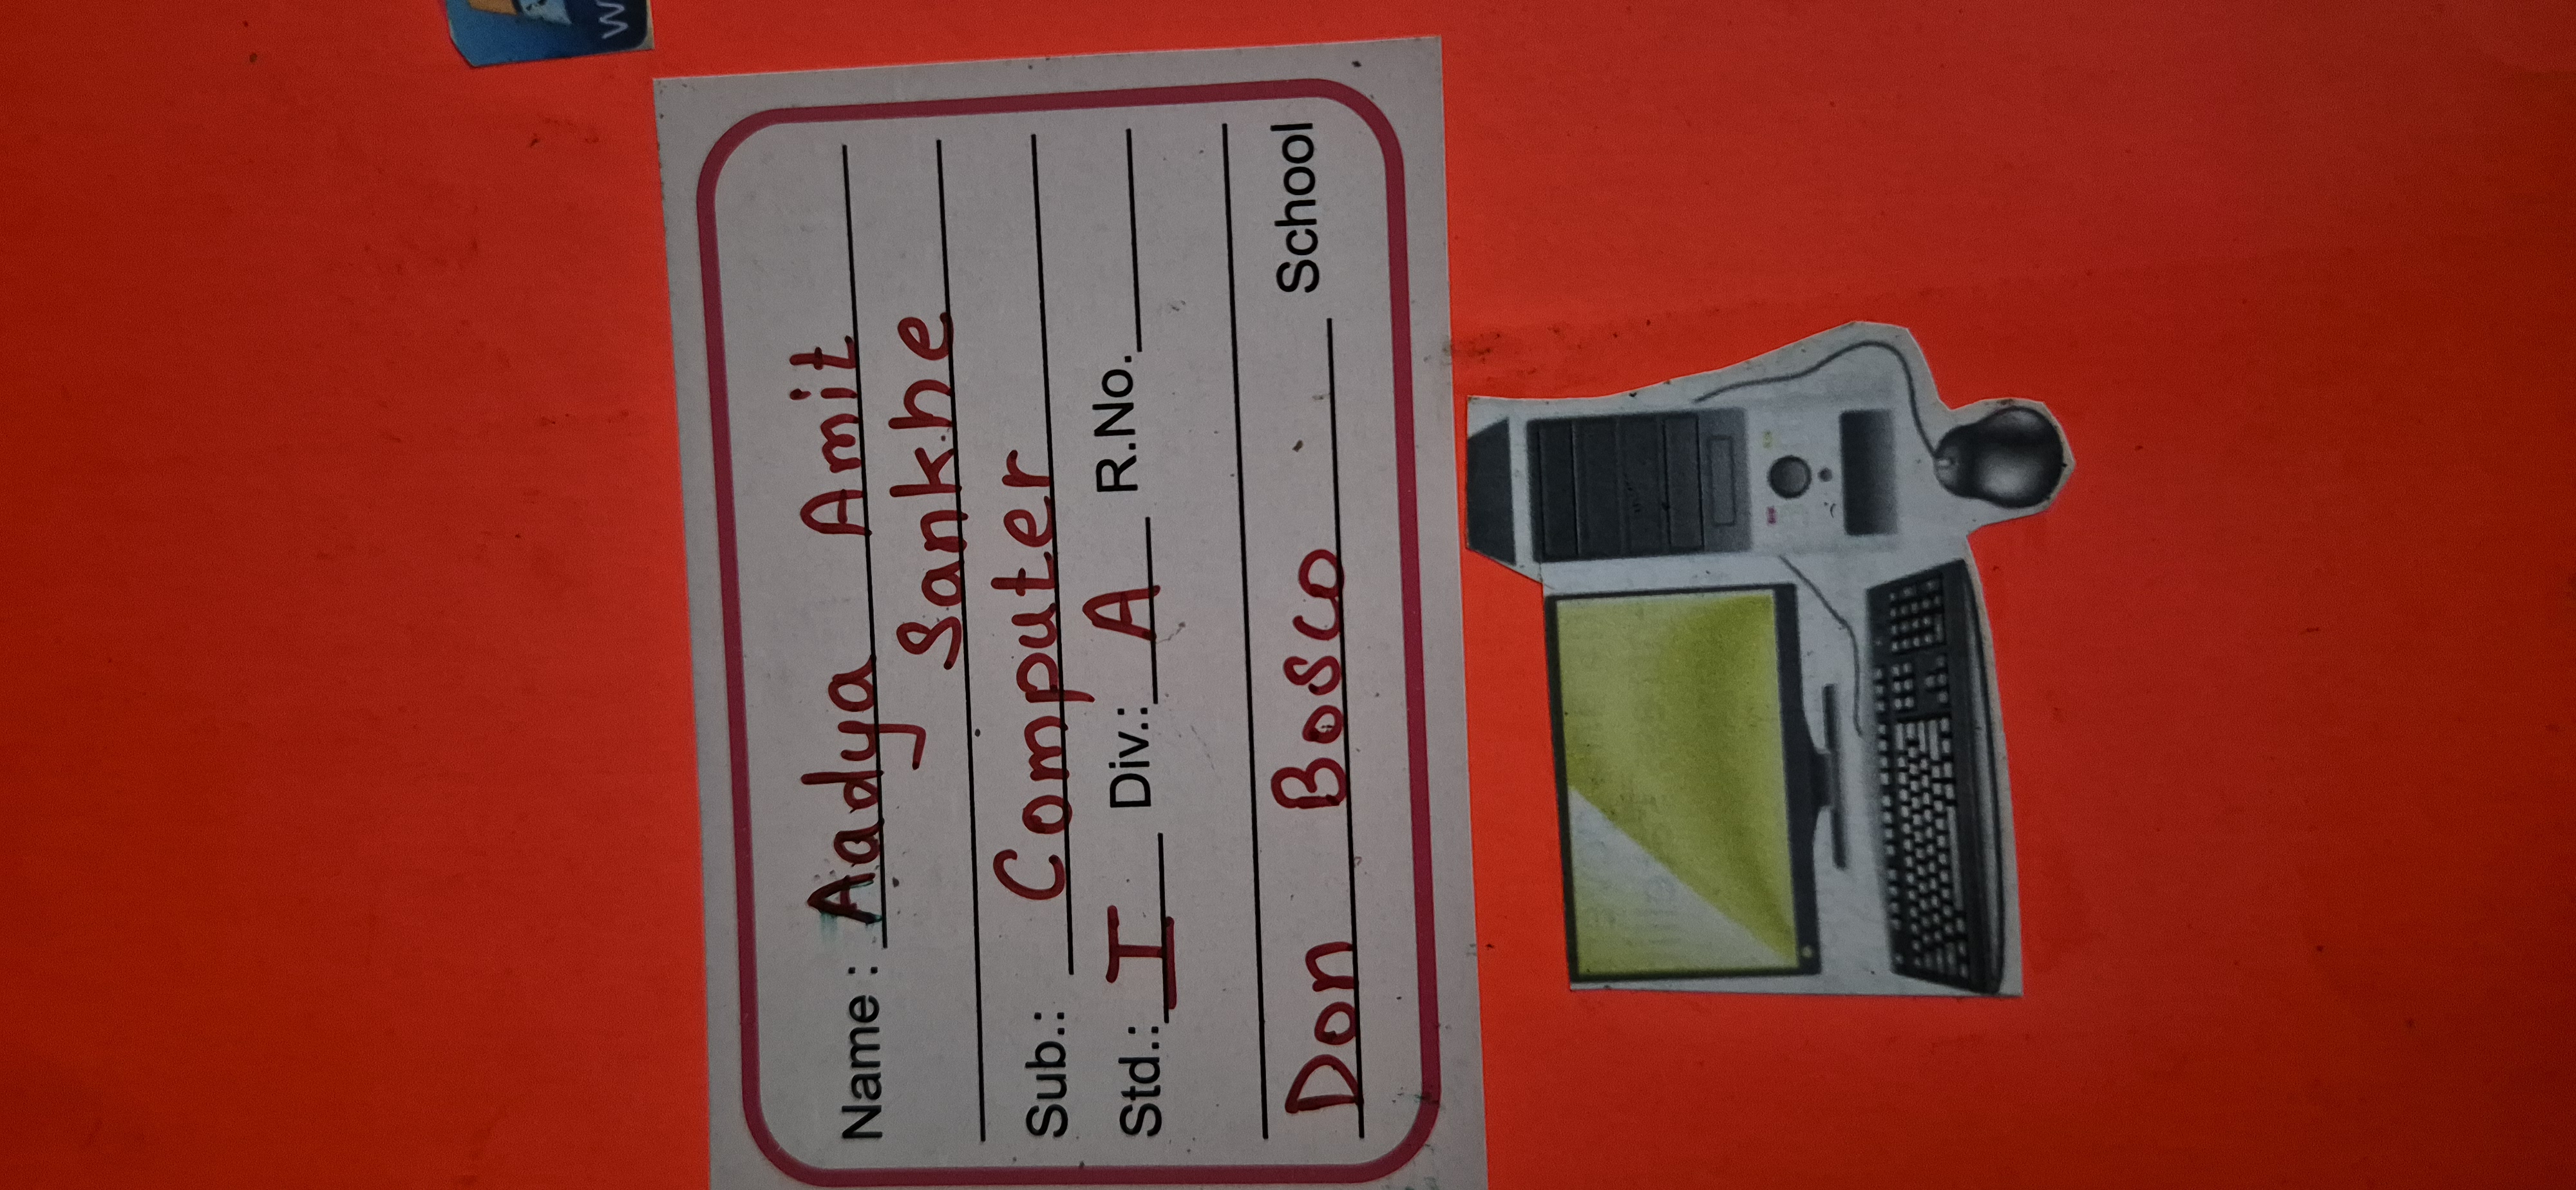 W
Name : Aadya Amit
Sankhe
Sub.: Computer
Std.: I Div.: A R.No.
Don Bosco School